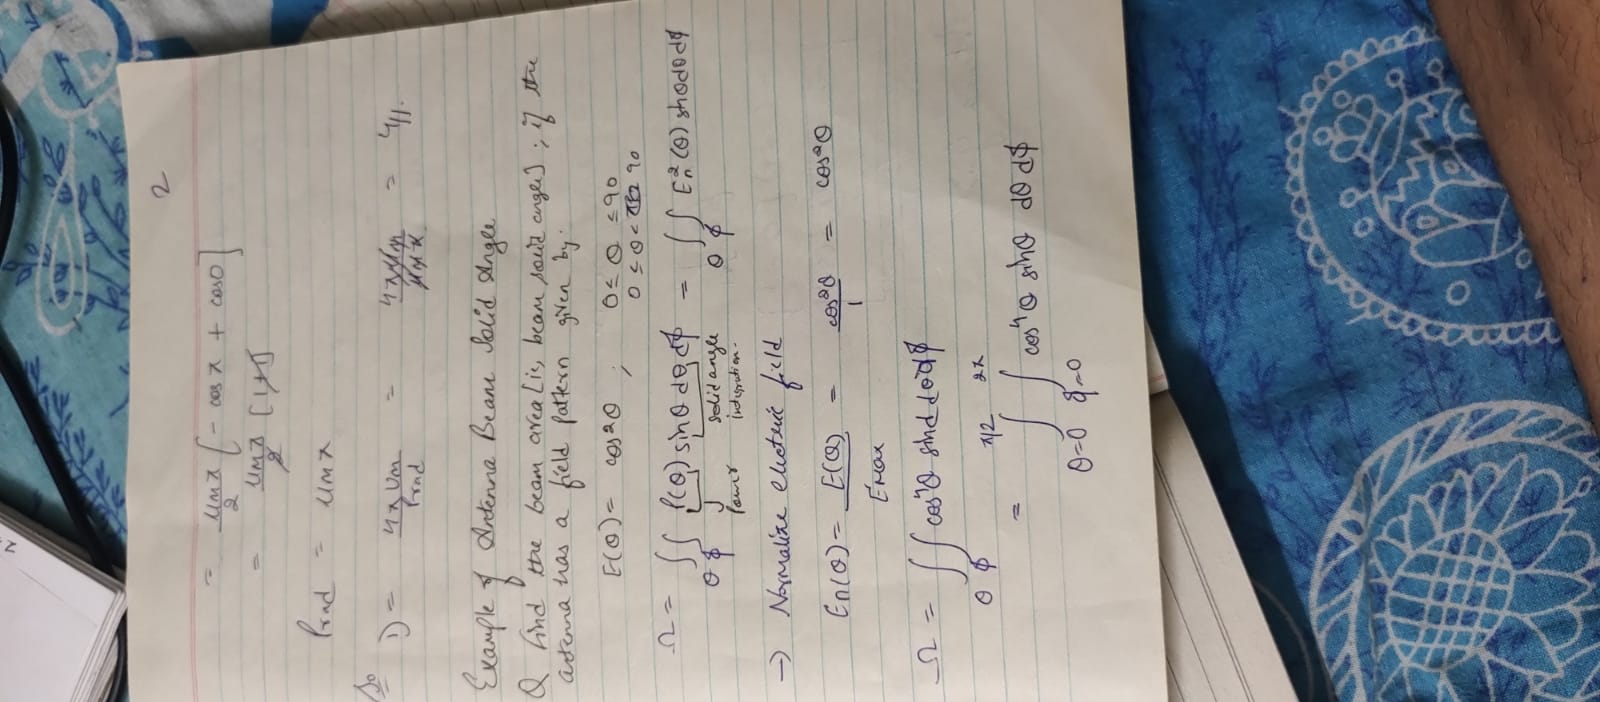 2
= UmΠ/2 [- cosπ + cos0]
= Umπ/2 [1+1]
Prad = Umπ
So D = 4πUm/Prad = 4πUm/Umπ = 4//.
Example of Antenna Beam Solid Angle
Q find the beam area [ie, beam solid angle]; if the
antenna has a field pattern given by.
E(θ) = cos²θ ; 0 ≤ θ ≤ 90
0 ≤ θ < 90
Ω = ∫∫ P(θ) sinθ dθ dϕ = ∫∫ En²(θ) sinθdθdϕ
θ ϕ θ ϕ
Power solid angle
integration.
→ Normalize electric field
En(θ) = E(θ)/Emax = cos²θ/1 = cos²θ
Ω = ∫∫ cos⁴θ sinθ dθdϕ
θ ϕ
π/2 2π
= ∫ ∫ cos⁴θ sinθ dθ dϕ
θ=0 ϕ=0